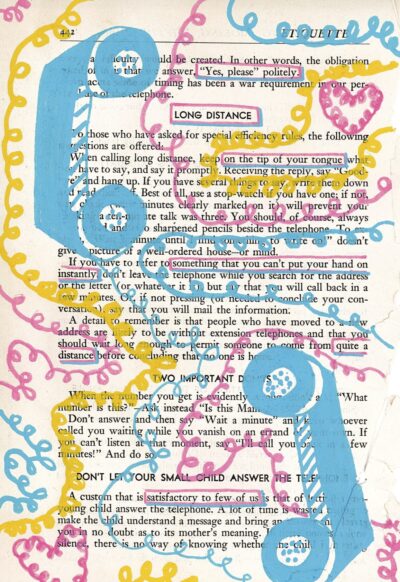 442 ETIQUETTE
would be created. In other words, the obligation
answer, "Yes, please" politely.
timing has been a war requirement in our per-
telephone.
LONG DISTANCE
To those who have asked for special efficiency rules, the following
suggestions are offered:
When calling long distance, keep on the tip of your tongue what
have to say, and say it promptly. Receiving the reply, say "Good-
and hang up. If you have several things to say, write them down
Best of all, use a stop-watch if you have one; if not,
minutes clearly marked on it will prevent your
the talk was free. You should, of course, always
and sharpened pencils beside the telephone. To
minute until I find something to write on" doesn't
give picture of a well-ordered house—or mind.
If you have to refer to something that you can't put your hand on
instantly, don't leave the telephone while you search for the address
or the letter or whatever it is, but say that you will call back in a
few minutes. Or, if not pressing (or needed to conclude your con-
versation) say that you will mail the information.
A detail to remember is that people who have moved to a new
address are likely to be without extension telephones and that you
should wait long enough to permit someone to come from quite a
distance before concluding that no one is home.
TWO IMPORTANT DON'TS
When the number you get is evidently "What
number is this?" Ask instead "Is this Main
Don't answer and then say "Wait a minute" and keep whoever
called you waiting while you vanish on an errand of If
you can't listen at that moment, say, "I'll call you back in a few
minutes!" And do so.
DON'T LET YOUR SMALL CHILD ANSWER THE TELEPHONE
A custom that is satisfactory to few of us is that of letting
young child answer the telephone. A lot of time is wasted
make the child understand a message and bring an
you in doubt as to its mother's meaning.
silence, there is no way of knowing whether the child